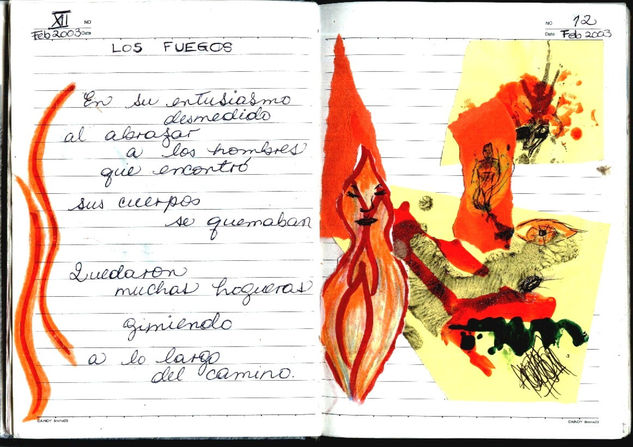 XII
NO
Feb 2003 Date
LOS FUEGOS
En su entusiasmo
desmedido
al abrazar
a los hombres
que encontró
sus cuerpos
se quemaban
Quedaron
muchas hogueras
gimiendo
a lo largo
del camino.
NO 12
Date Feb 2003